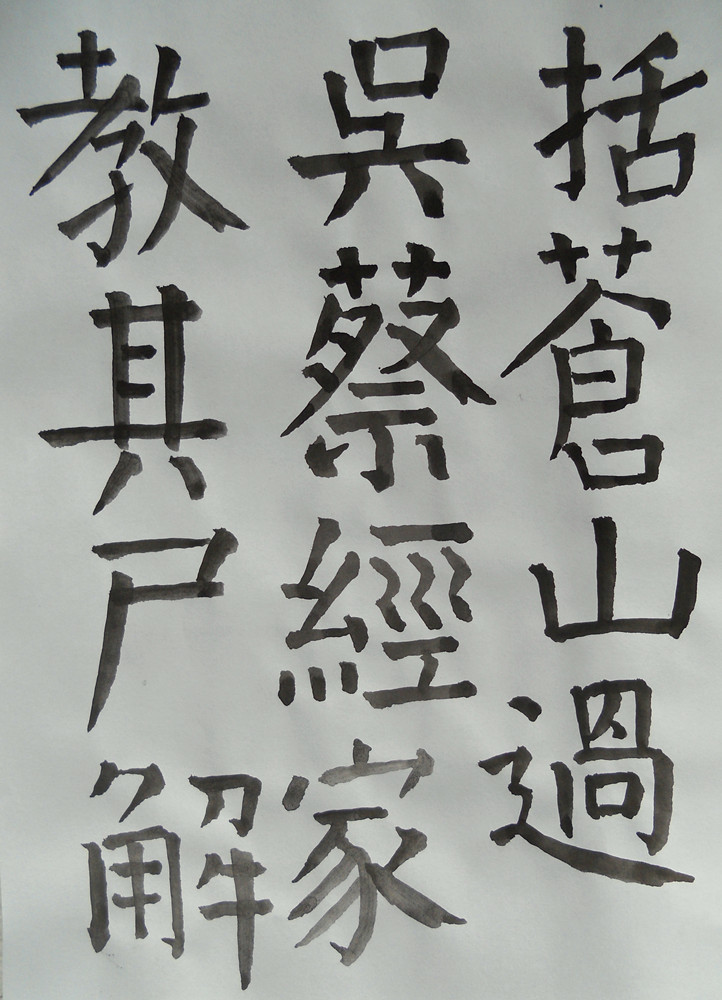 括蒼山過
吳蔡經家
教其尸解